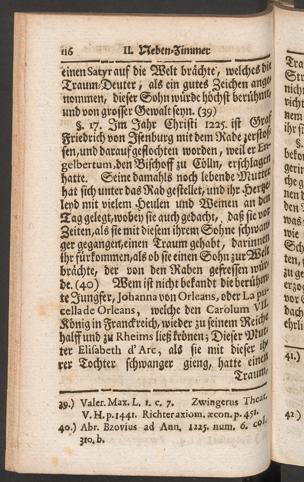 116 II. Neben-Zimmer
einen Satyr auf die Welt brächte, welches die
Traum-Deuter, als ein gutes Zeichen ange-
nommen, dieser Sohn würde höchst berühmt,
und von grosser Gewalt seyn. (39)
§. 17. Im Jahr Christi 1225. ist Graf
Friedrich von Isenburg mit dem Rade zerstos-
sen, und darauf geflochten worden, weil er En-
gelbertum, den Bischoff zu Cölln, erschlagen
hatte. Seine damahls noch lebende Mutter
hat sich unter das Rad gestellet, und ihr Hertze-
leyd mit vielem Heulen und Weinen an den
Tag gelegt, wobey sie auch gedacht, daß sie vor
Zeiten, als sie mit diesem ihrem Sohne schwan-
ger gegangen, einen Traum gehabt, darinnen
ihr fürkommen, als ob sie einen Sohn zur Welt
brächte, der von den Raben gefressen wür-
de. (40) Wem ist nicht bekandt die berühm-
te Jungfer, Johanna von Orleans, oder La pu-
cella de Orleans, welche den Carolum VII.
König in Franckreich, wieder zu seinem Reiche
halff und zu Rheims ließ krönen; Dieser Mut-
ter Elisabeth d'Arc, als sie mit dieser ih-
rer Tochter schwanger gieng, hatte einen
Traum,
39.) Valer. Max. L. 1. c. 7. Zwingerus Theat.
V. H. p. 1441. Richter axiom. œcon. p. 451.
40.) Abr. Bzovius ad Ann. 1225. num. 6. col.
310. b.